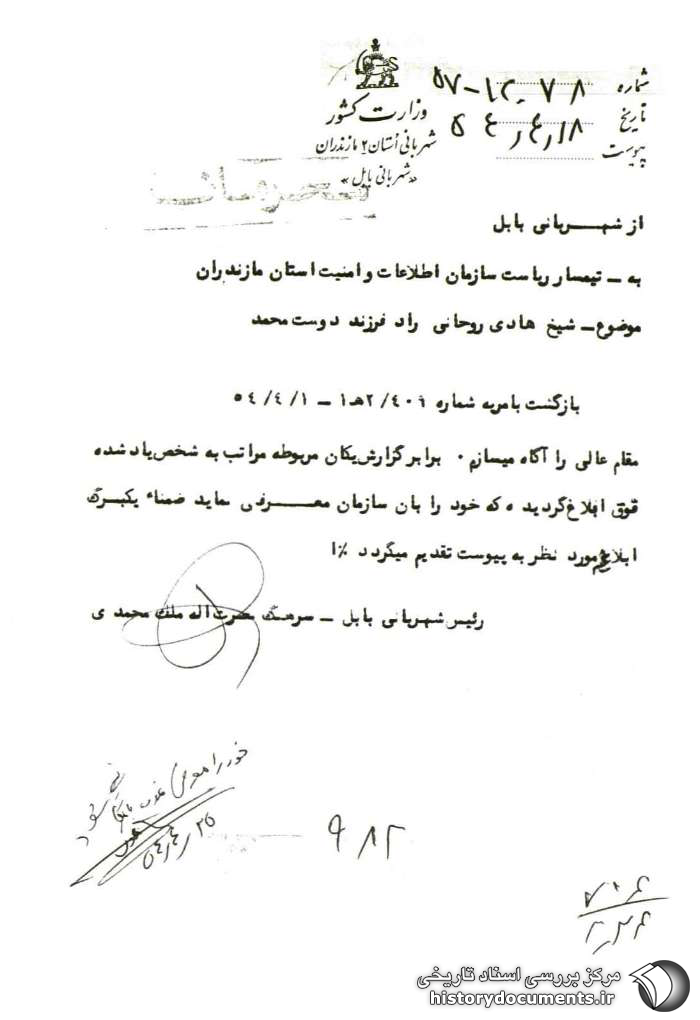 شماره ۵۷-۱۲۰۷۸
تاریخ ۵۴٫۴٫۱۸
پیوست
وزارت کشور
شهربانی استان ۲ مازندران
«شهربانی بابل»
محرمانه
از شهربانی بابل
به ــ تیمسار ریاست سازمان اطلاعات و امنیت استان مازندران
موضوع ــ شیخ هادی روحانی راد فرزند دوست محمد
بازگشت بامریه شماره ۲/۴۰۹هـ۱ ــ ۵۴/۴/۱
مقام عالی را آگاه میسازم ۰ برابر گزارش یکان مربوطه مراتب به شخص یاد شده
فوق ابلاغ گردیده که خود را بان سازمان معرفی نماید ضمناً یکبرگ
ابلاغ مورد نظر به پیوست تقدیم میگردد
رئیس شهربانی بابل ــ سرهنگ نصرت اله ملک محمدی
خود را معرفی
۵۴٫۴٫۲۵
۹۸۲
مرکز بررسی اسناد تاریخی
historydocuments.ir